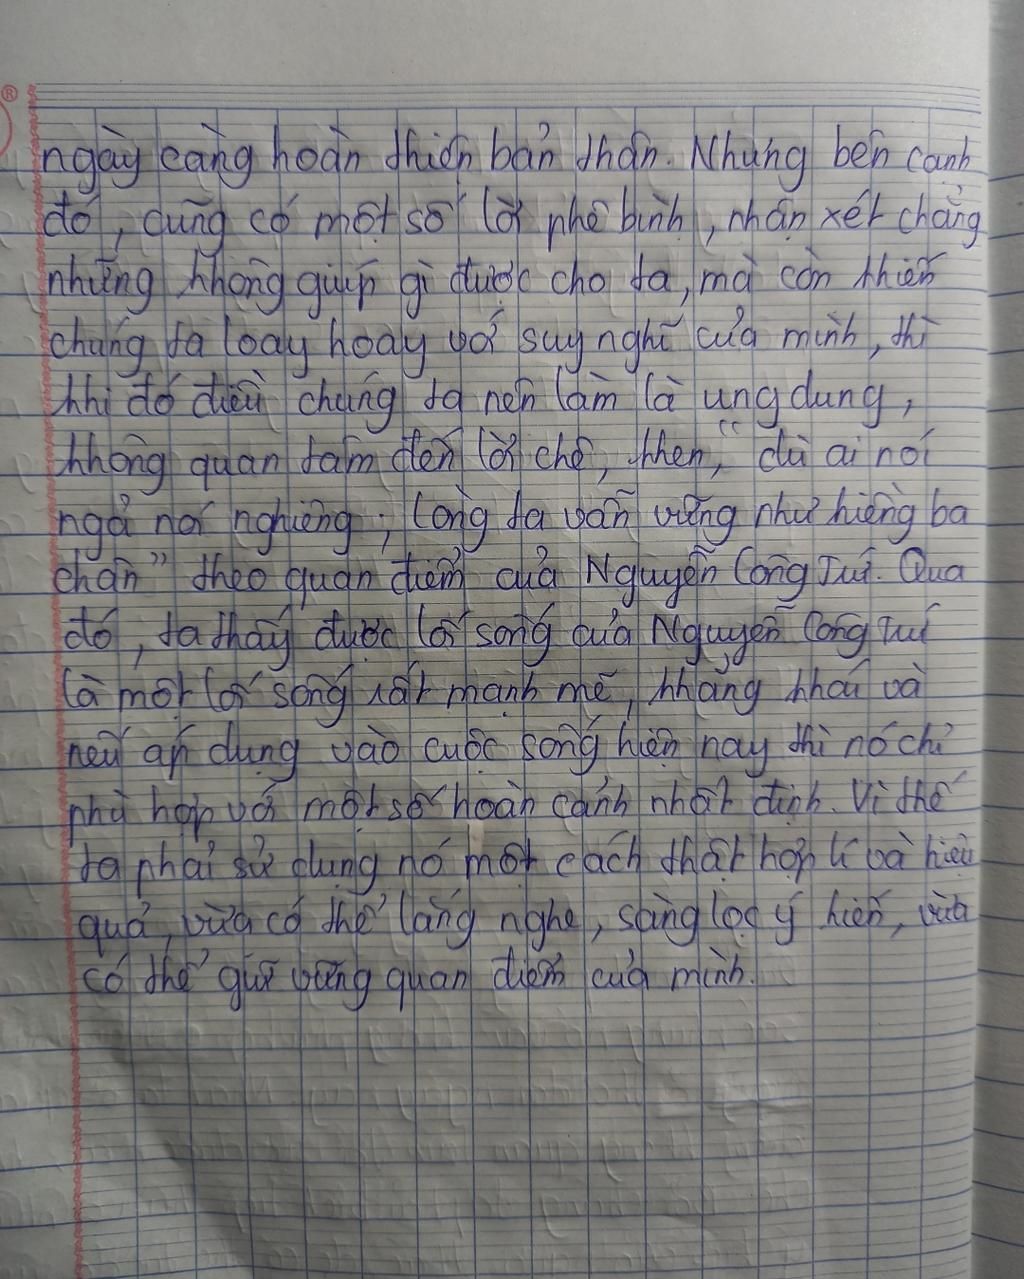 ngày càng hoàn thiện bản thân. Nhưng bên cạnh
đó, cũng có một số lời phê bình, nhận xét chẳng
những không giúp gì được cho ta, mà còn khiến
chúng ta loay hoay với suy nghĩ của mình, thì
khi đó điều chúng ta nên làm là ung dung,
không quan tâm đến lời chê, khen, “dù ai nói
ngả nói nghiêng; lòng ta vẫn vững như kiềng ba
chân” theo quan điểm của Nguyễn Công Trứ. Qua
đó, ta thấy được lối sống của Nguyễn Công Trứ
là một lối sống rất mạnh mẽ, khẳng khái và
nếu áp dụng vào cuộc sống hiện nay thì nó chỉ
phù hợp với một số hoàn cảnh nhất định. Vì thế
ta phải sử dụng nó một cách thật hợp lí và hiệu
quả, vừa có thể lắng nghe, sàng lọc ý kiến, vừa
có thể giữ vững quan điểm của mình.